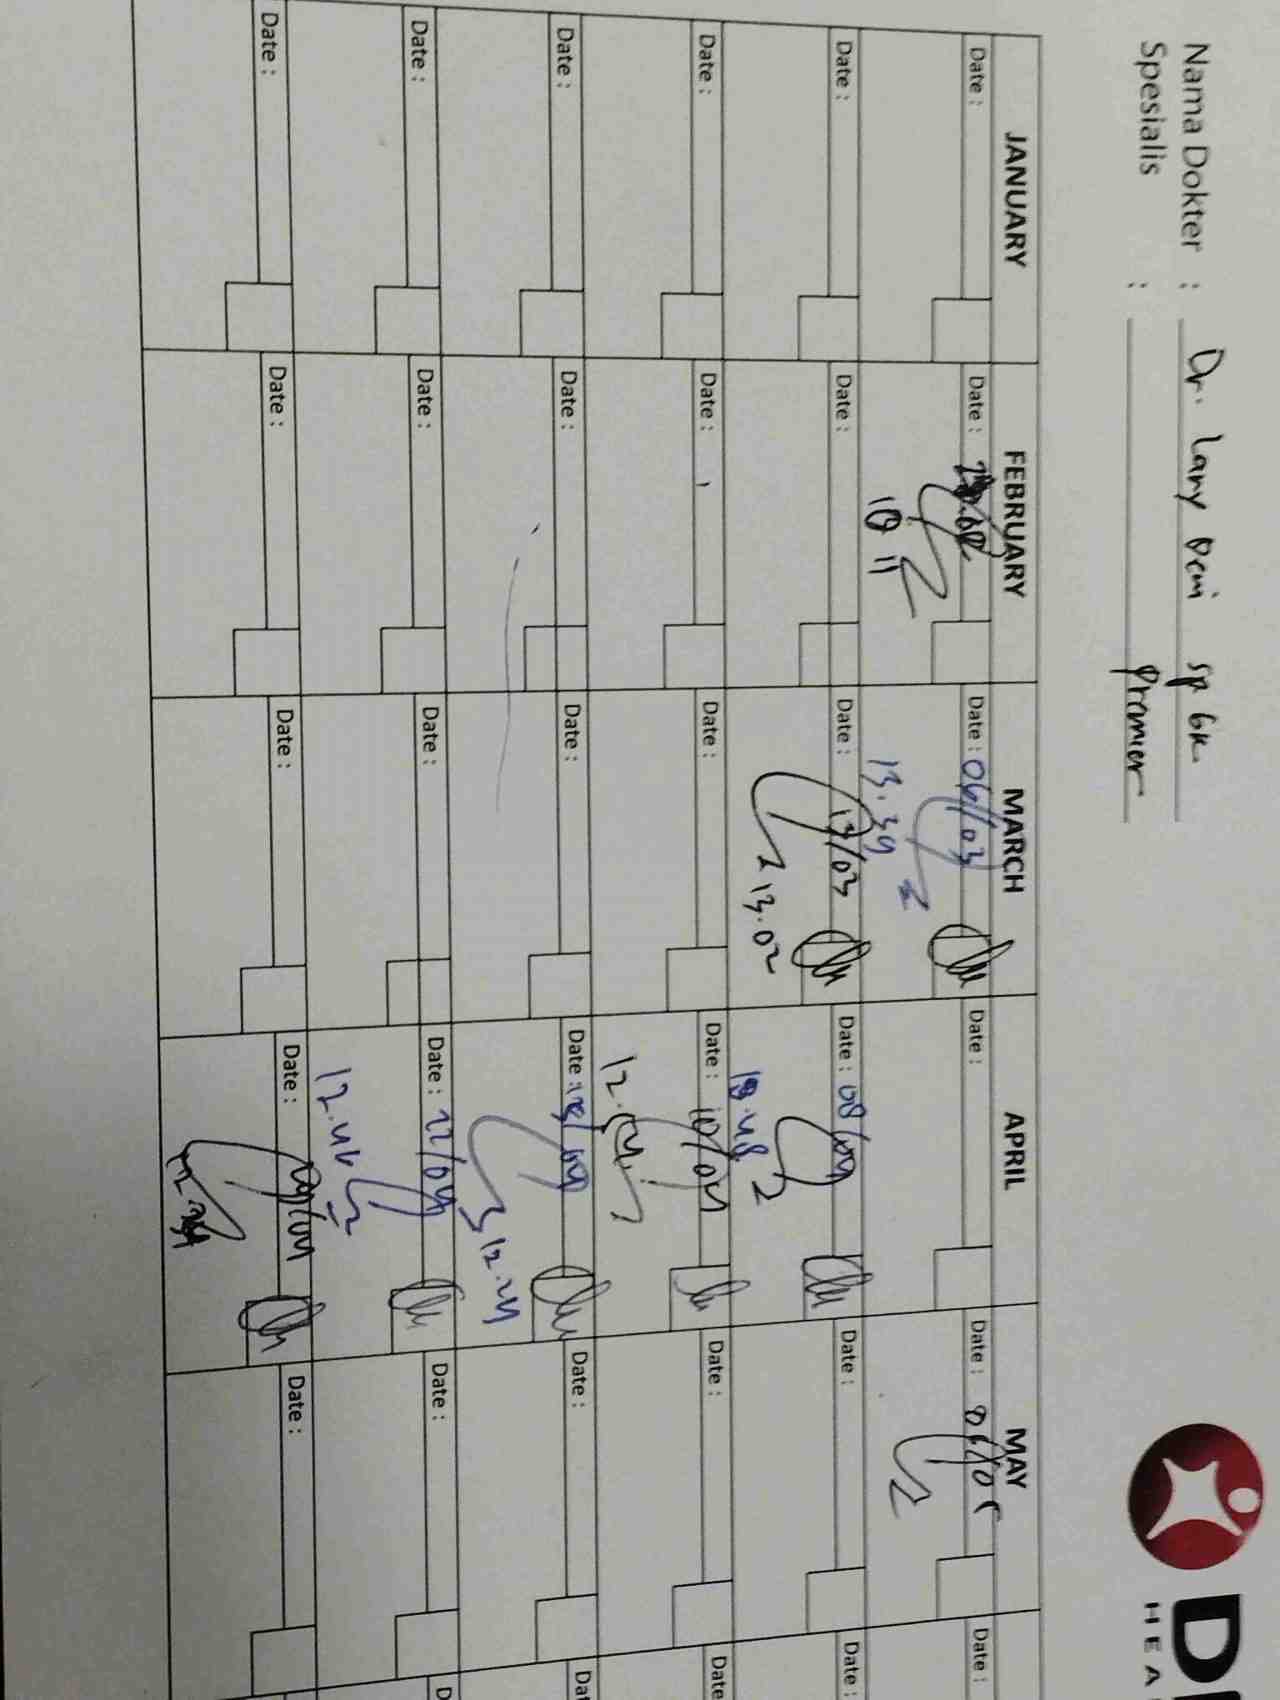 Nama Dokter : Dr. Lary Deni sp GK
Spesialis : Premier
D
HEA
JANUARY FEBRUARY MARCH APRIL MAY
Date : Date : Date : 06/03 Date : Date : 06/05 Date :
10 11 13.39
Date : Date : Date : 13/03 Date : 08/04 Date : Date :
13.02
Date : Date : Date : Date : 10/04 Date : Date
Date : Date : Date : Date : Date : Dat
12.24
Date : Date : Date : Date : 22/04 Date : D
12.46
Date : Date : Date : Date : Date :